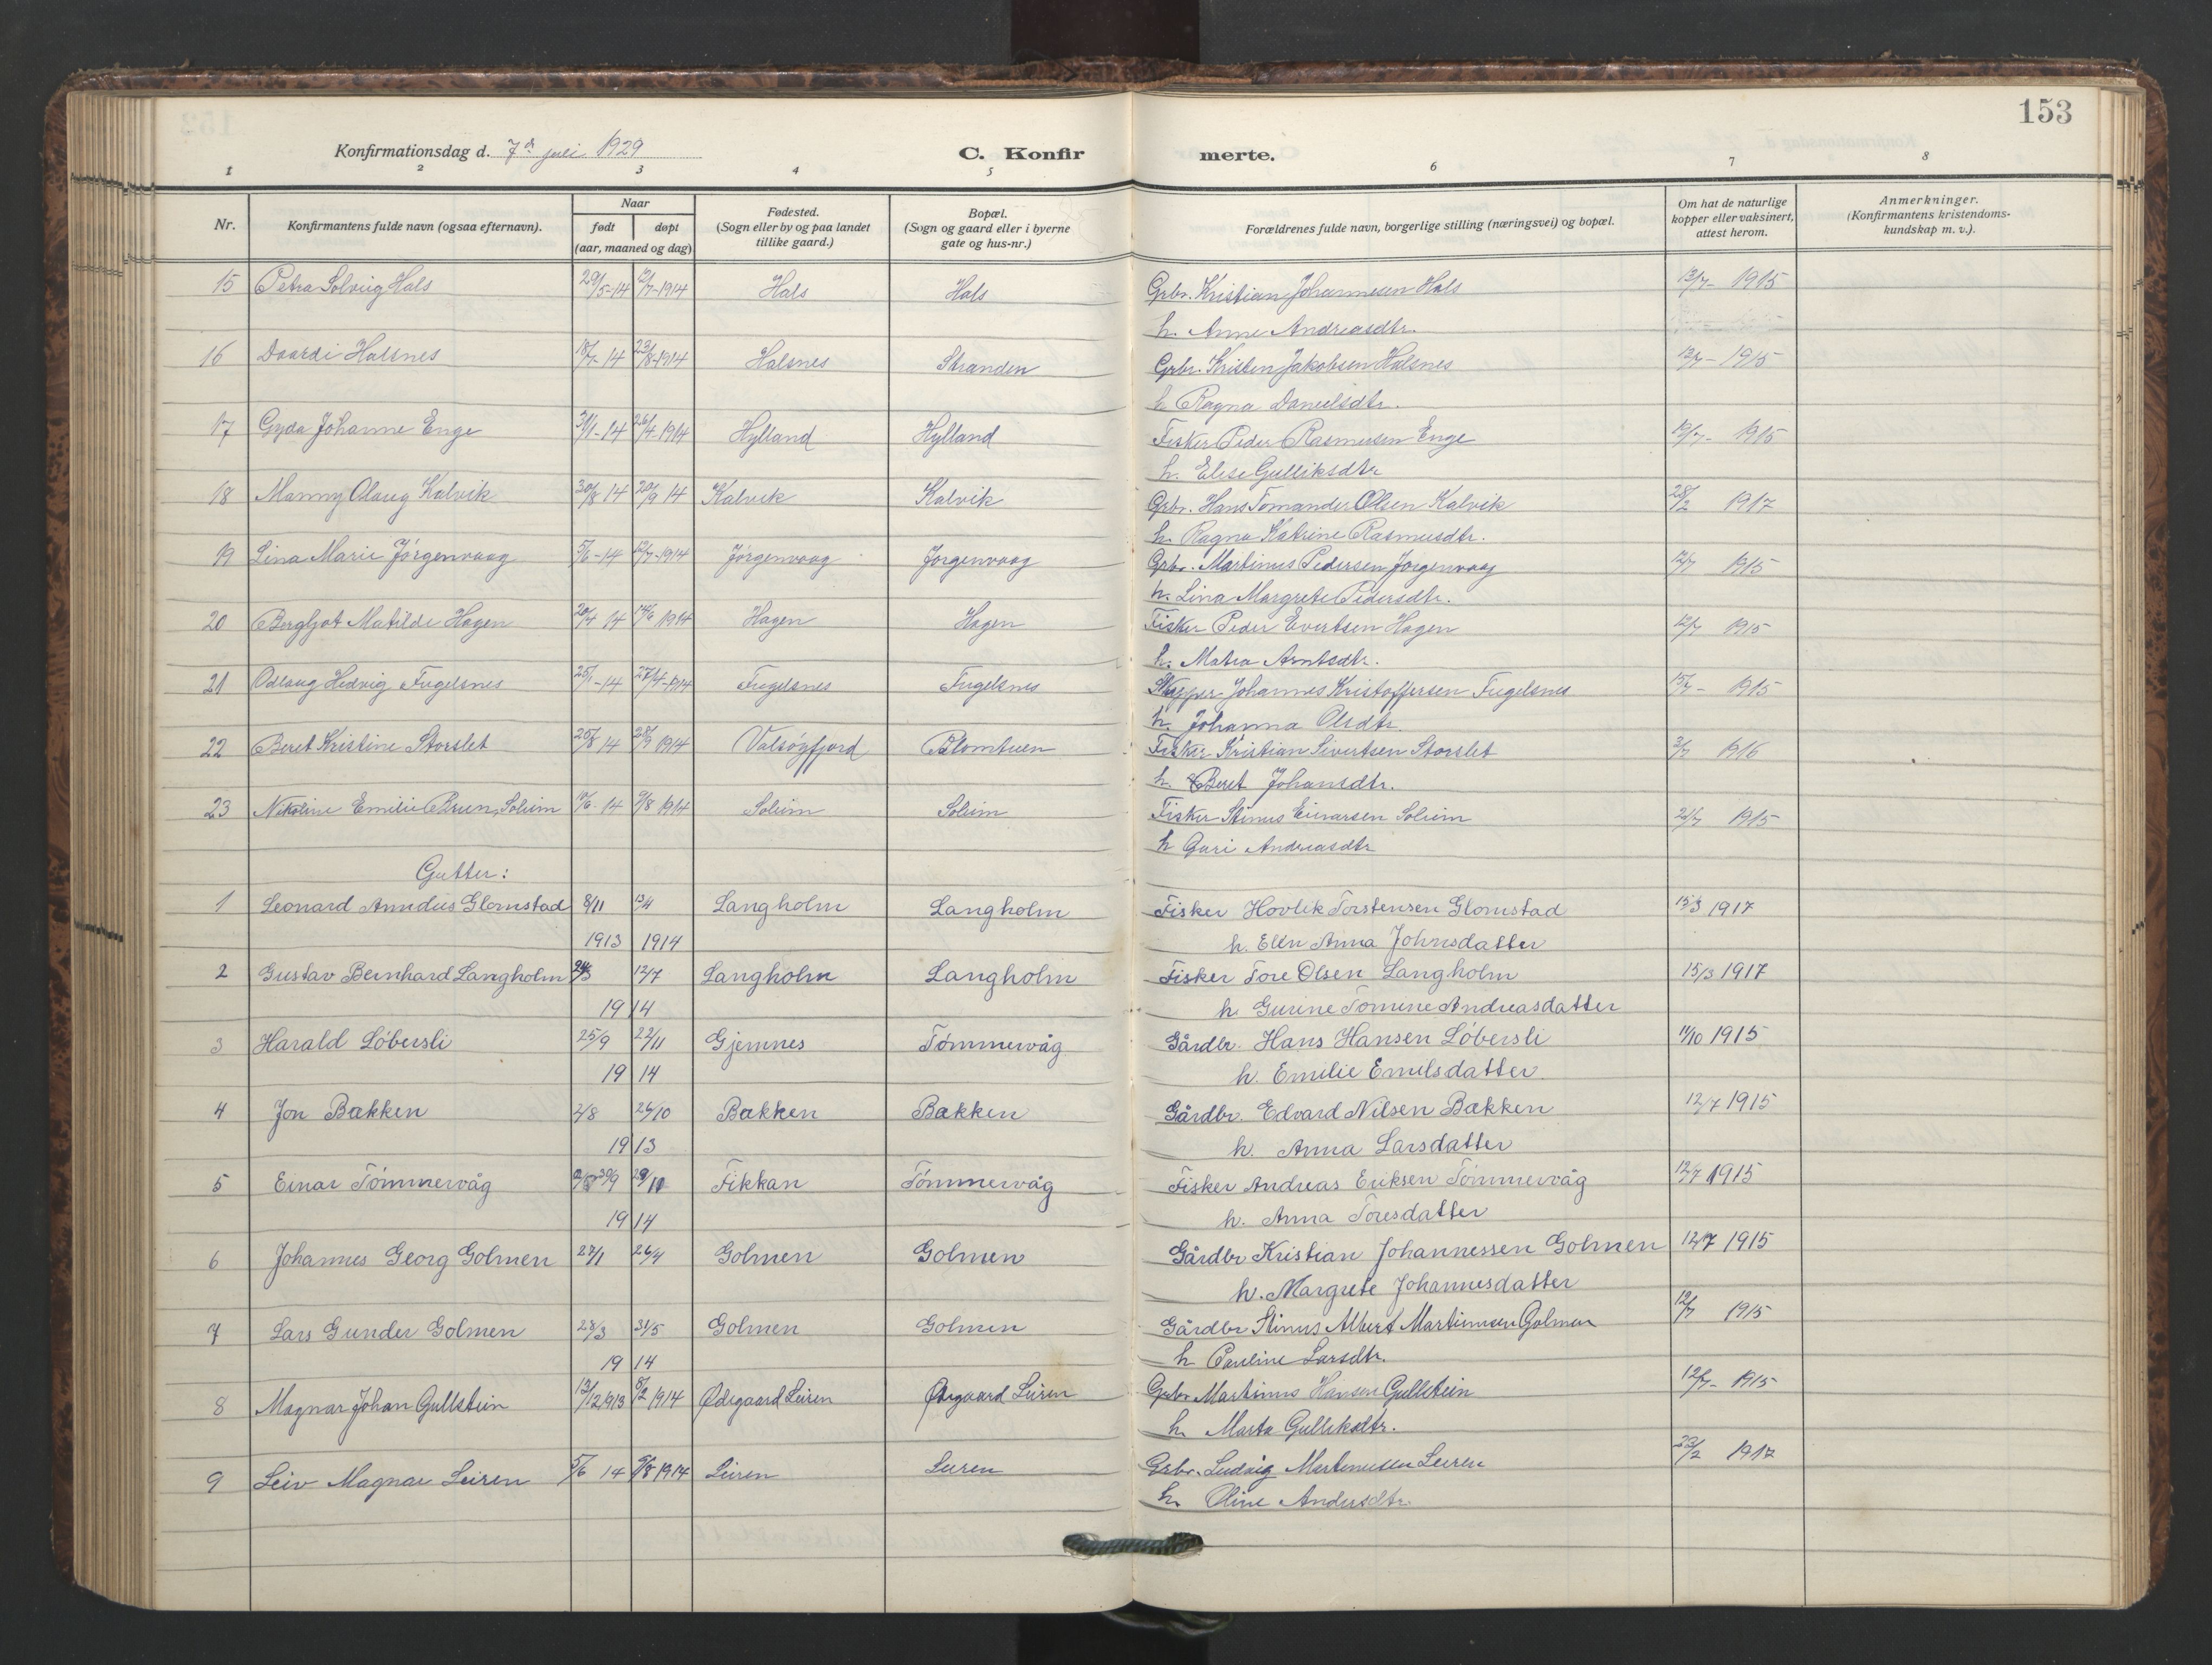 153
Konfirmationsdag d. 7de juli 1929
C. Konfir merte.
1 2 3 4 5 6 7 8
Nr. Konfirmantens fulde navn (ogsaa efternavn). Naar født døpt (aar, maaned og dag) Fødested. (Sogn eller by og paa landet tillike gaard.) Bopæl. (Sogn og gaard eller i byerne gate og hus-nr.) Forældrenes fulde navn, borgerlige stilling (næringsvei) og bopæl. Om hat de naturlige kopper eller vaksinert, attest herom. Anmerkninger. (Konfirmantens kristendoms-kundskap m. v.).
15 Petra Solveig Hals 29/5-14 12/7-1914 Hals Hals Grbr. Kristian Johannesen Hals 13/7- 1915
h. Anne Andreasdtr.
16 Daardi Halsnes 18/7-14 23/8-1914 Halsnes Stranden Grbr. Kristen Jakobsen Halsnes 13/7-1915
h Ragna Danielsdtr.
17 Gyda Johanne Enge 31/1-14 26/4-1914 Hylland Hylland Fisker Peder Rasmussen Enge 12/7- 1915
h. Elise Gulliksdtr
18 Manny Olaug Kalvik 30/8 14 20/9 14 Kalvik Kalvik Grbr. Hans Tomander Olsen Kalvik 28/2 1917
h. Ragna Katrine Rasmusdtr.
19 Lina Marie Jörgenvaag 5/6-14 12/7-1914 Jörgenvaag Jørgenvaag Grbr. Martinus Pedersen Jørgenvaag 12/7 1915
h. Lina Margrete Pedersdtr.
20 Bergljot Matilde Hagen 20/4 14 14/6 1914 Hagen Hagen Fisker Peder Evertsen Hagen 12/7 1915
h. Matea Arntsdtr.
21 Odlaug Hedvig Fugelsnes 25/1-14 27/4-1914 Fugelsnes Fugelsnes Skipper Johannes Kristoffersen Fugelsnes 15/7- 1915
h. Johanna Olsdtr.
22 Beret Kristine Storslet 25/8 14 28/9 1914 Valsöyfjord Blomtuen Fisker Kristian Sivertsen Storslet 3/7 1916
h. Beret Johansdtr.
23 Nikoline Emilie Brun, Solum 10/6-14 9/8 1914 Soleim Soleim Fisker Stinus Einarsen Soleim 21/7 1915
h Guri Andreasdtr
Gutter:
1 Leonard Anndus Glomstad 8/11 13/4 Langholm Langholm Fisker Hovlik Torstensen Glomstad 15/3 1917
1913 1914 h. Elen Anna Johnsdatter
2 Gustav Bernhard Langholm 24/3 12/7 Langholm Langholm Fisker Tore Olsen Langholm 15/3 1917
19 14 h. Gurine Tomine Andreasdatter
3 Harald Löbersli 25/9 22/11 Gjemnes Tømmervåg Gårdbr. Hans Hansen Löbersli 11/10 1915
19 14 h. Emilie Emilsdatter.
4 Jon Bakken 2/8 26/10 Bakken Bakken Gårdbr. Edvard Nilsen Bakken 12/7 1915
19 13 h. Anna Larsdatter
5 Einar Tömmervåg 30/9 29/11 Fikkan Tömmervåg Fisker Andreas Eriksen Tömmervåg 12/7 1915
19 14 h. Anna Toresdatter
6 Johannes Georg Golmen 27/1 26/4 Golmen Golmen Gårdbr Kristian Johannessen Golmen 12/7 1915
h. Margrete Johannesdatter
7 Lars Gunder Golmen 28/3 31/5 Golmen Golmen Gårdbr Stinus Albert Martinusen Golmen 12/7 1915
19 14 h Pauline Larsdtr.
8 Magnar Johan Gullstein 12/12 1913 8/2 1914 Ødegaard Leiren Ødegaard Leiren Grbr Martinus Hansen Gullstein 12/7- 1915
h. Marta Gulliksdtr.
9 Leiv Magnar Leiren 5/6 14 9/8 1914 Leiren Leiren Grbr. Ludvig Martinusen Leiren 28/2 1917
h. Oline Andersdtr.